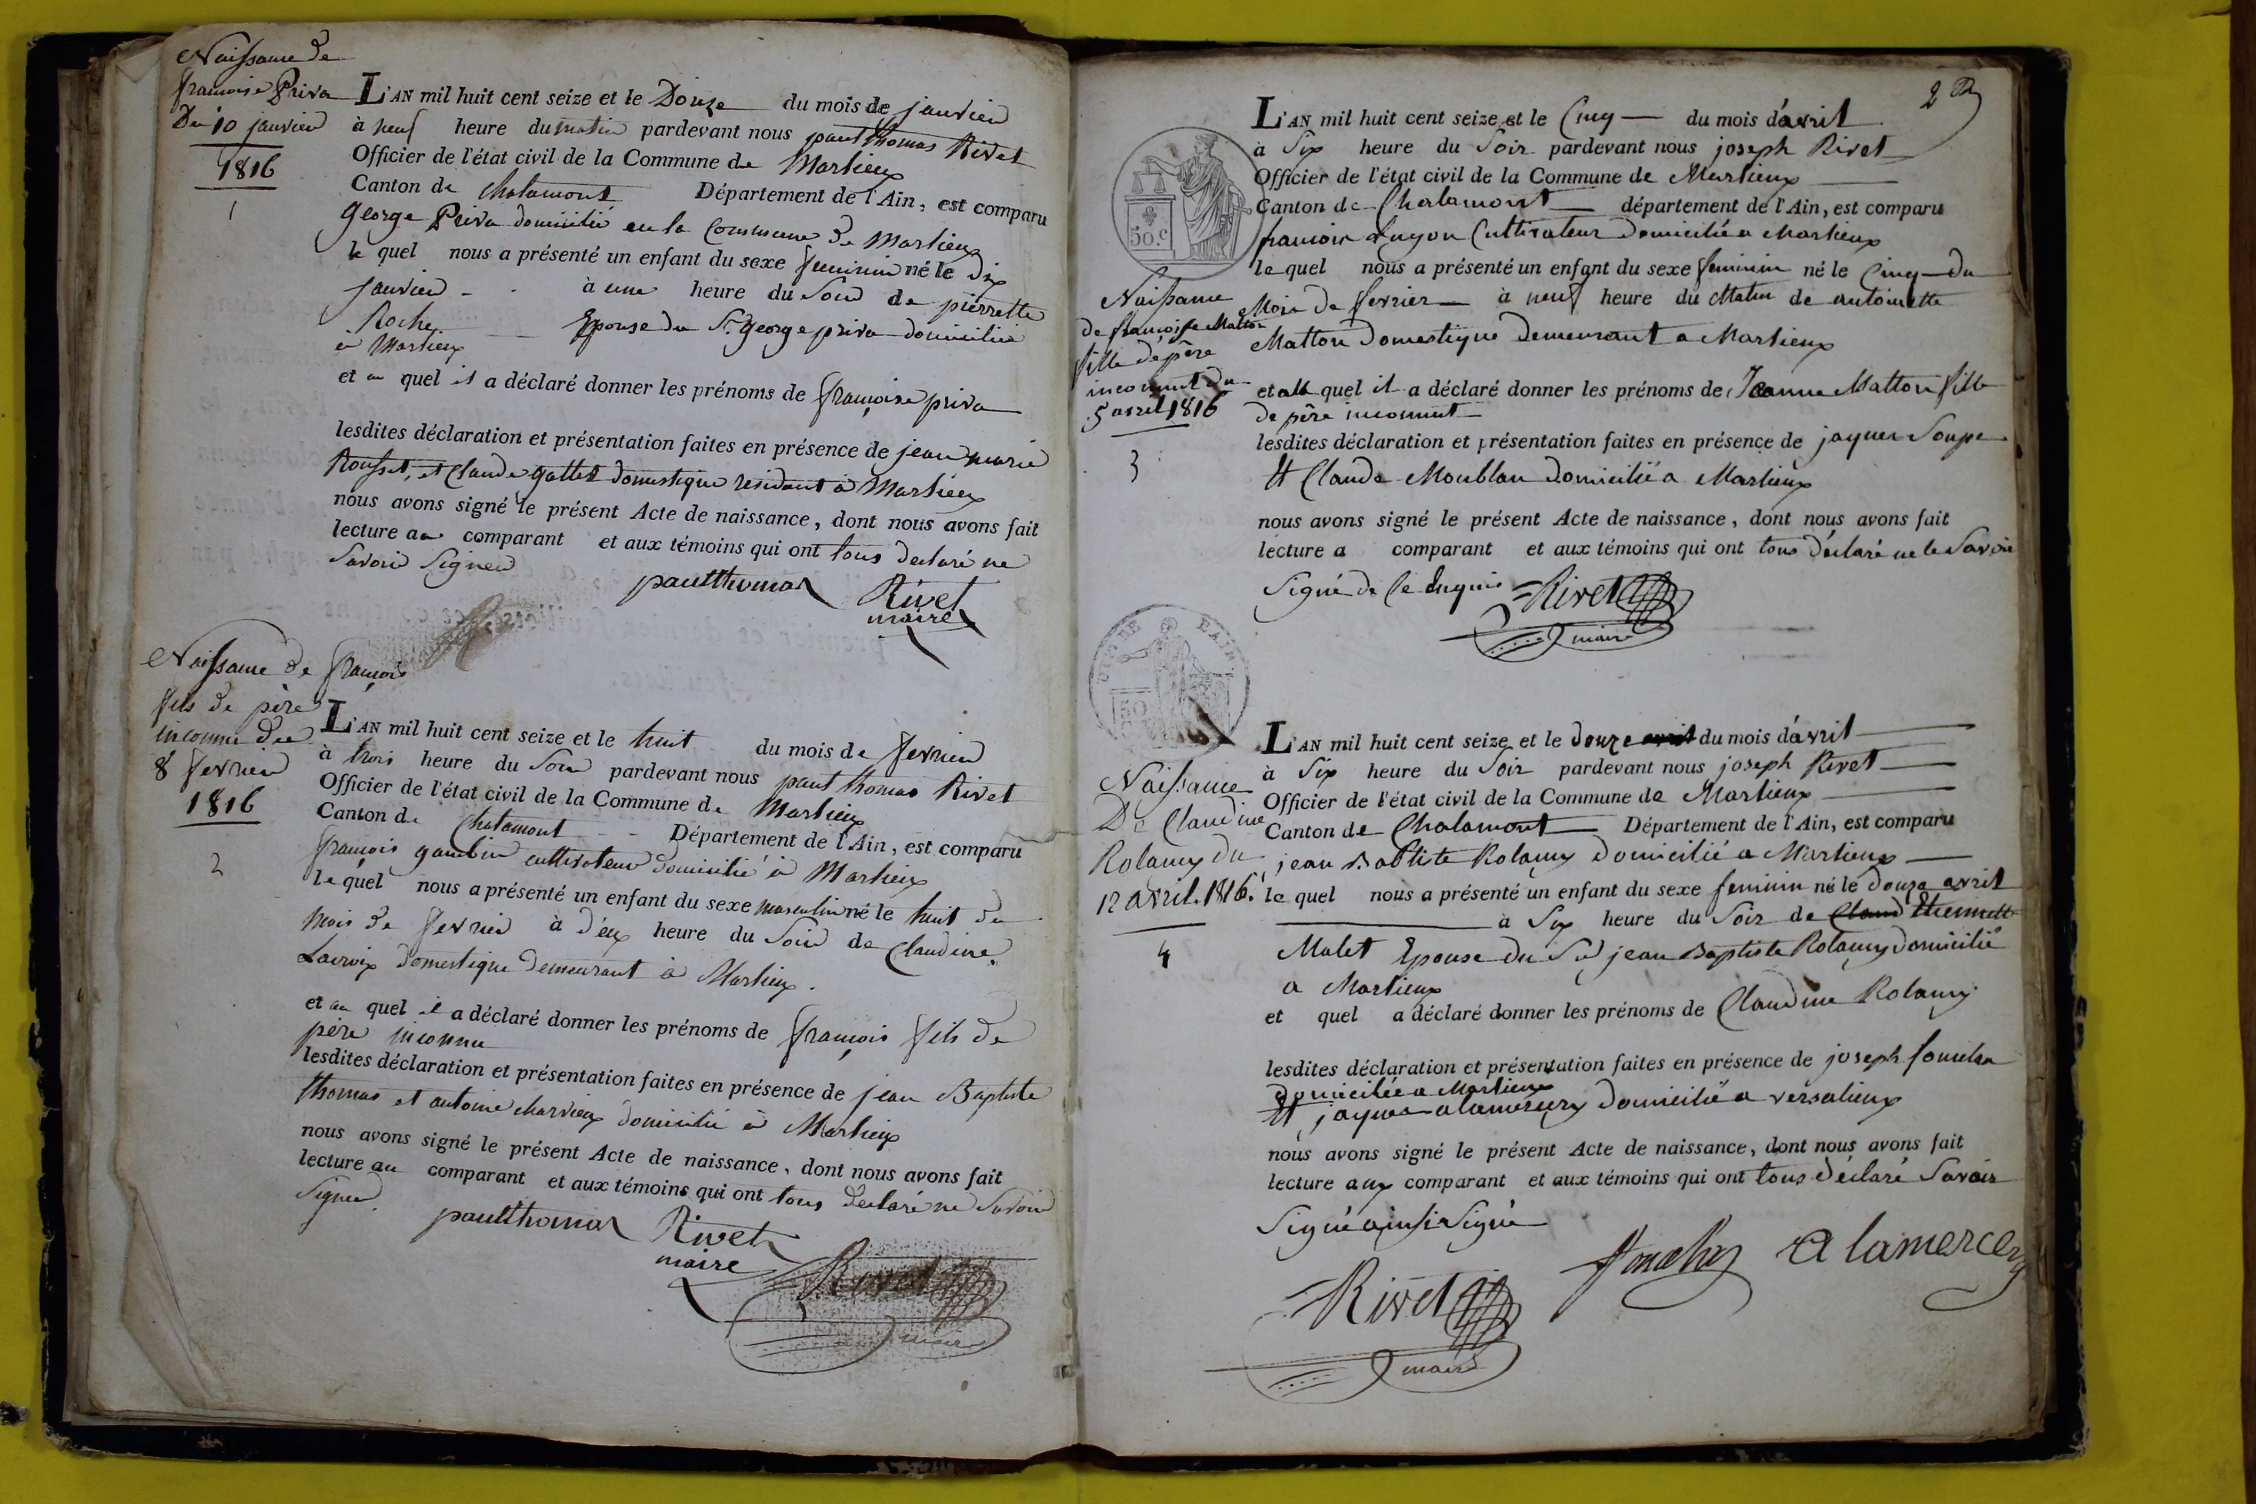 Naissance de
françoise Priva
Du 10 janvier
1816
1
L'AN mil huit cent seize et le Douze du mois de janvier
à neuf heure du matin pardevant nous paul thomas Rivet
Officier de l'état civil de la Commune de Marlieux
Canton de Chalamont Département de l'Ain, est comparu
George Priva domicilié en la Commune de Marlieux
le quel nous a présenté un enfant du sexe feminin né le dix
janvier à une heure du Soir de pierrette
Roche Epouse du Sr. george priva domicilié
à Marlieux
et au quel il a déclaré donner les prénoms de françoise priva
lesdites déclaration et présentation faites en présence de jean marie
Rousset, et Claude gallet domestique residant à Marlieux
nous avons signé le présent Acte de naissance, dont nous avons fait
lecture au comparant et aux témoins qui ont tous declaré ne
Savoir Signer
paul thomas Rivet
maire
Naissance de françois
fils de père
inconnu du
8 fevrier
1816
2
L'AN mil huit cent seize et le huit du mois de fevrier
à trois heure du Soir pardevant nous paul thomas Rivet
Officier de l'état civil de la Commune de Marlieux
Canton de Chalamont Département de l'Ain, est comparu
françois gambin cultivateur domicilié à Marlieux
le quel nous a présenté un enfant du sexe masculin né le huit du
mois de fevrier à deux heure du Soir de Claudine
Lacroix domestique demeurant à Marlieux.
et au quel il a déclaré donner les prénoms de françois fils de
père inconnu
lesdites déclaration et présentation faites en présence de jean Baptiste
thomas et antoine domicilié à Marlieux
nous avons signé le présent Acte de naissance, dont nous avons fait
lecture au comparant et aux témoins qui ont tous declaré ne Savoir
Signer.
paul thomas Rivet
maire
Rivet
maire
2
L'AN mil huit cent seize et le Cinq du mois d'avril
à Six heure du Soir pardevant nous joseph Rivet
Officier de l'état civil de la Commune de Marlieux
Canton de Chalamont département de l'Ain, est comparu
françois Cultivateur domicilié a Marlieux
le quel nous a présenté un enfant du sexe feminin né le Cinq du
Mois de fevrier à neuf heure du Matin de antoinette
Matton Domestique demeurant a Marlieux
et au quel il a déclaré donner les prénoms de Jeanne Matton fille
de père inconnut
lesdites déclaration et présentation faites en présence de jaques Soupe
et Claude Moublan domicilié a Marlieux
nous avons signé le présent Acte de naissance, dont nous avons fait
lecture a comparant et aux témoins qui ont tous déclaré ne le Savoir
Signé de Ce Enquis Rivet
maire
50.c
Naissance
de françoise Matton
fille de père
inconnut du
5 avril 1816
3
50
Naissance
De Claudine
Rolamy du
12 avril 1816.
4
L'AN mil huit cent seize et le douze avril du mois d'avril
à Six heure du Soir pardevant nous joseph Rivet
Officier de l'état civil de la Commune de Marlieux
Canton de Chalamont Département de l'Ain, est comparu
jean Babtiste Rolamy domicilié a Marlieux
le quel nous a présenté un enfant du sexe feminin né le douze avril
à Six heure du Soir de Claud Etiennette
Malet Epouse du Sr jean Baptiste Rolamy domicilié
a Marlieux
et quel a déclaré donner les prénoms de Claudine Rolamy
lesdites déclaration et présentation faites en présence de joseph
domiciliée a Marlieux
et jaques alamercery domicilié a versalieux
nous avons signé le présent Acte de naissance, dont nous avons fait
lecture aux comparant et aux témoins qui ont tous déclaré Savoir
Signé ainsi Signé
Rivet
maire
alamercery